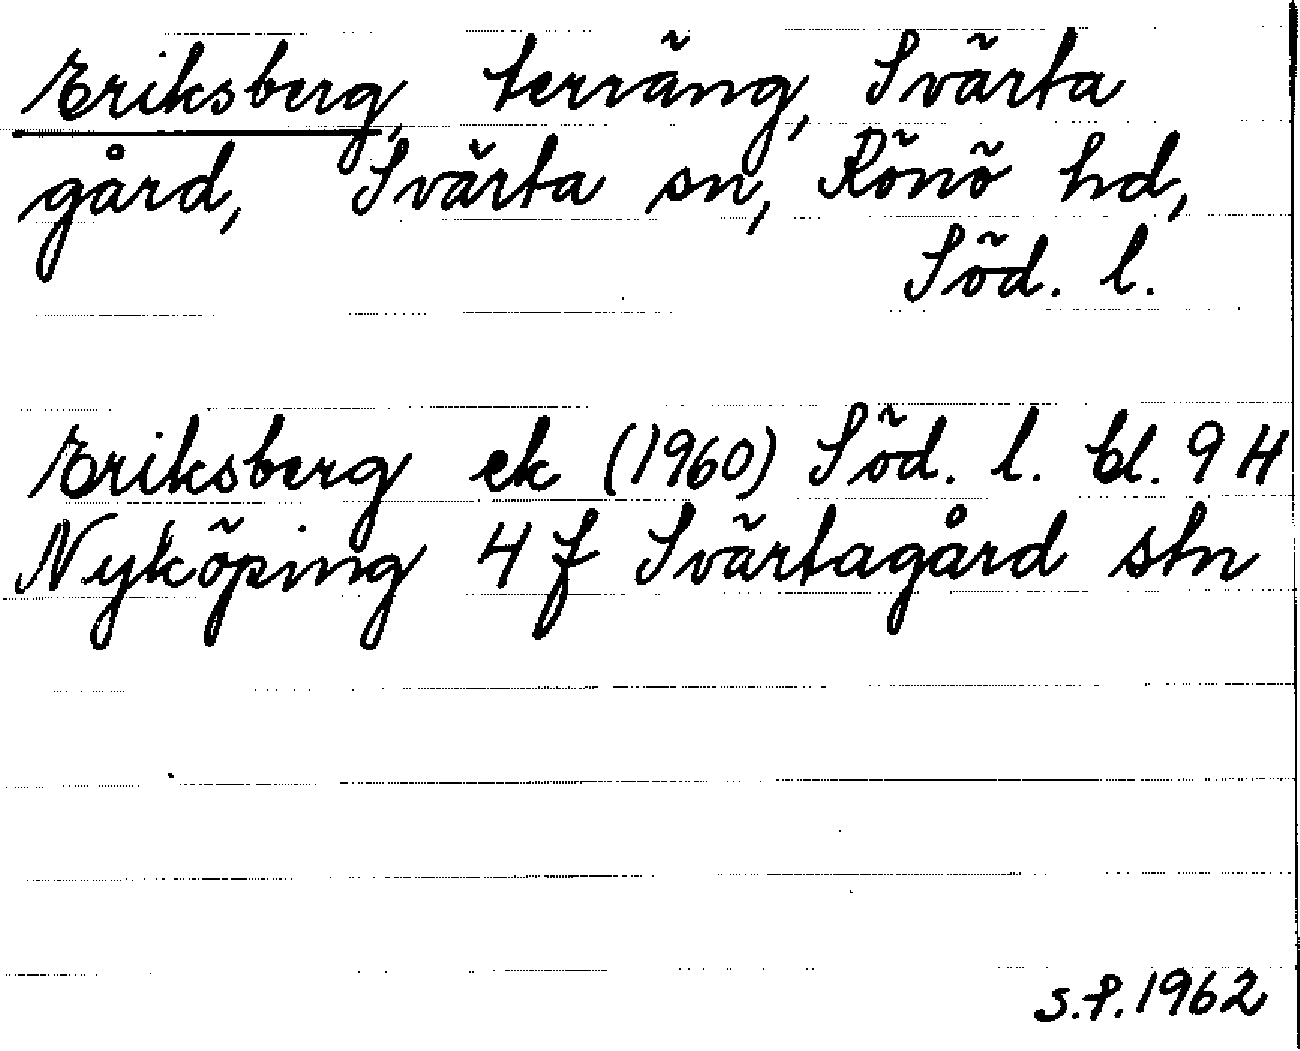 Eriksberg, terräng, Svärta
gård, Svärta sn, Rönö hd,
Söd. l.
Eriksberg ek (1960) Söd. l. bl. 9 H
Nyköping 4 f Svärtagård stn
S.P. 1962